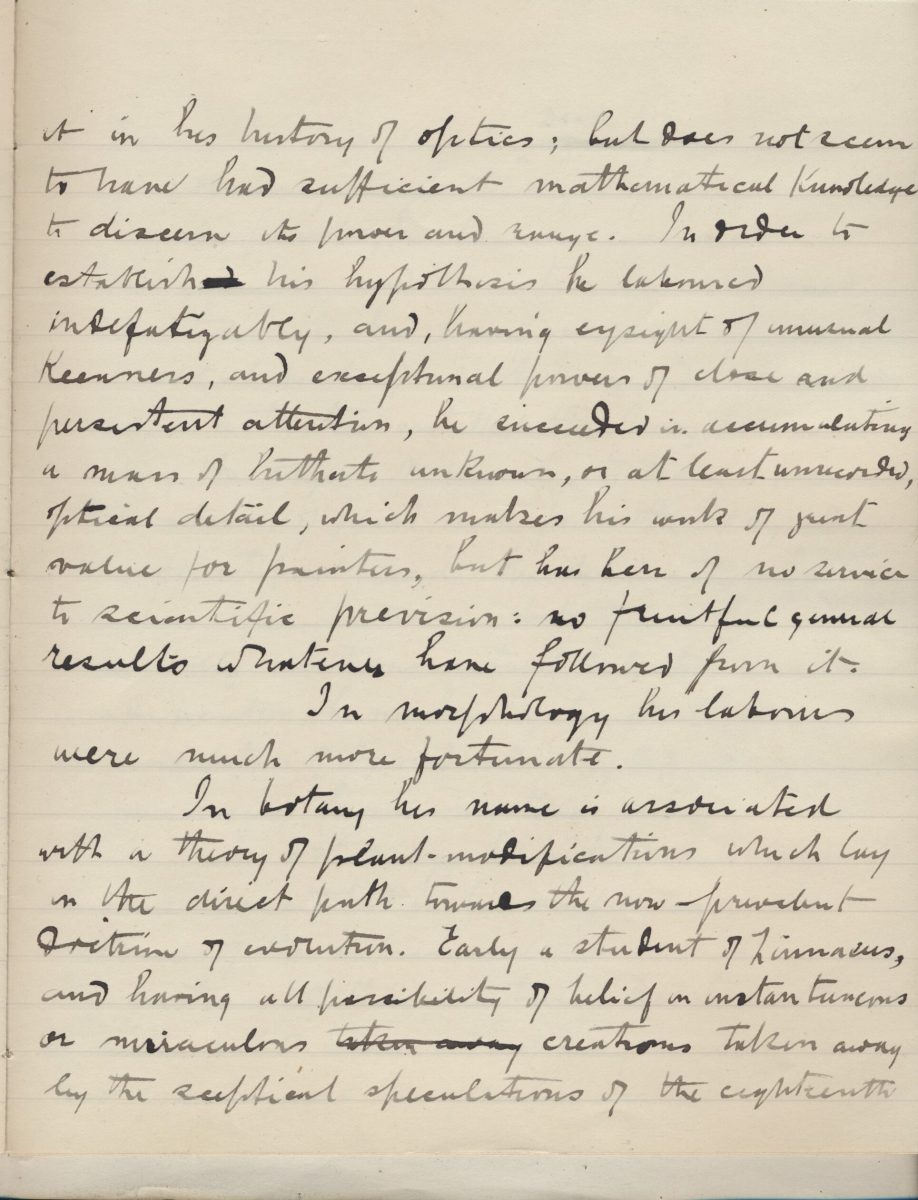 it in his history of optics; but does not seem
to have had sufficient mathematical Knowledge
to discern its power and range. In order to
established his hypothesis he laboured
indefatigably, and, having eyesight of unusual
Keenness, and exceptional powers of close and
persistent attention, he succeeded in accumulating
a mass of hitherto unknown, or at least unrecorded,
optical detail, which makes his work of great
value for painters, but has been of no service
to scientific prevision: no fruitful general
results whatever have followed from it.
In morphology his labours
were much more fortunate.
In botany his name is associated
with a theory of plant-modifications which lay
in the direct path towards the now-prevalent
Doctrine of evolution. Early a student of Linnaeus,
and having all possibility of belief in instantaneous
or miraculous taken away creations taken away
by the sceptical speculations of the eighteenth